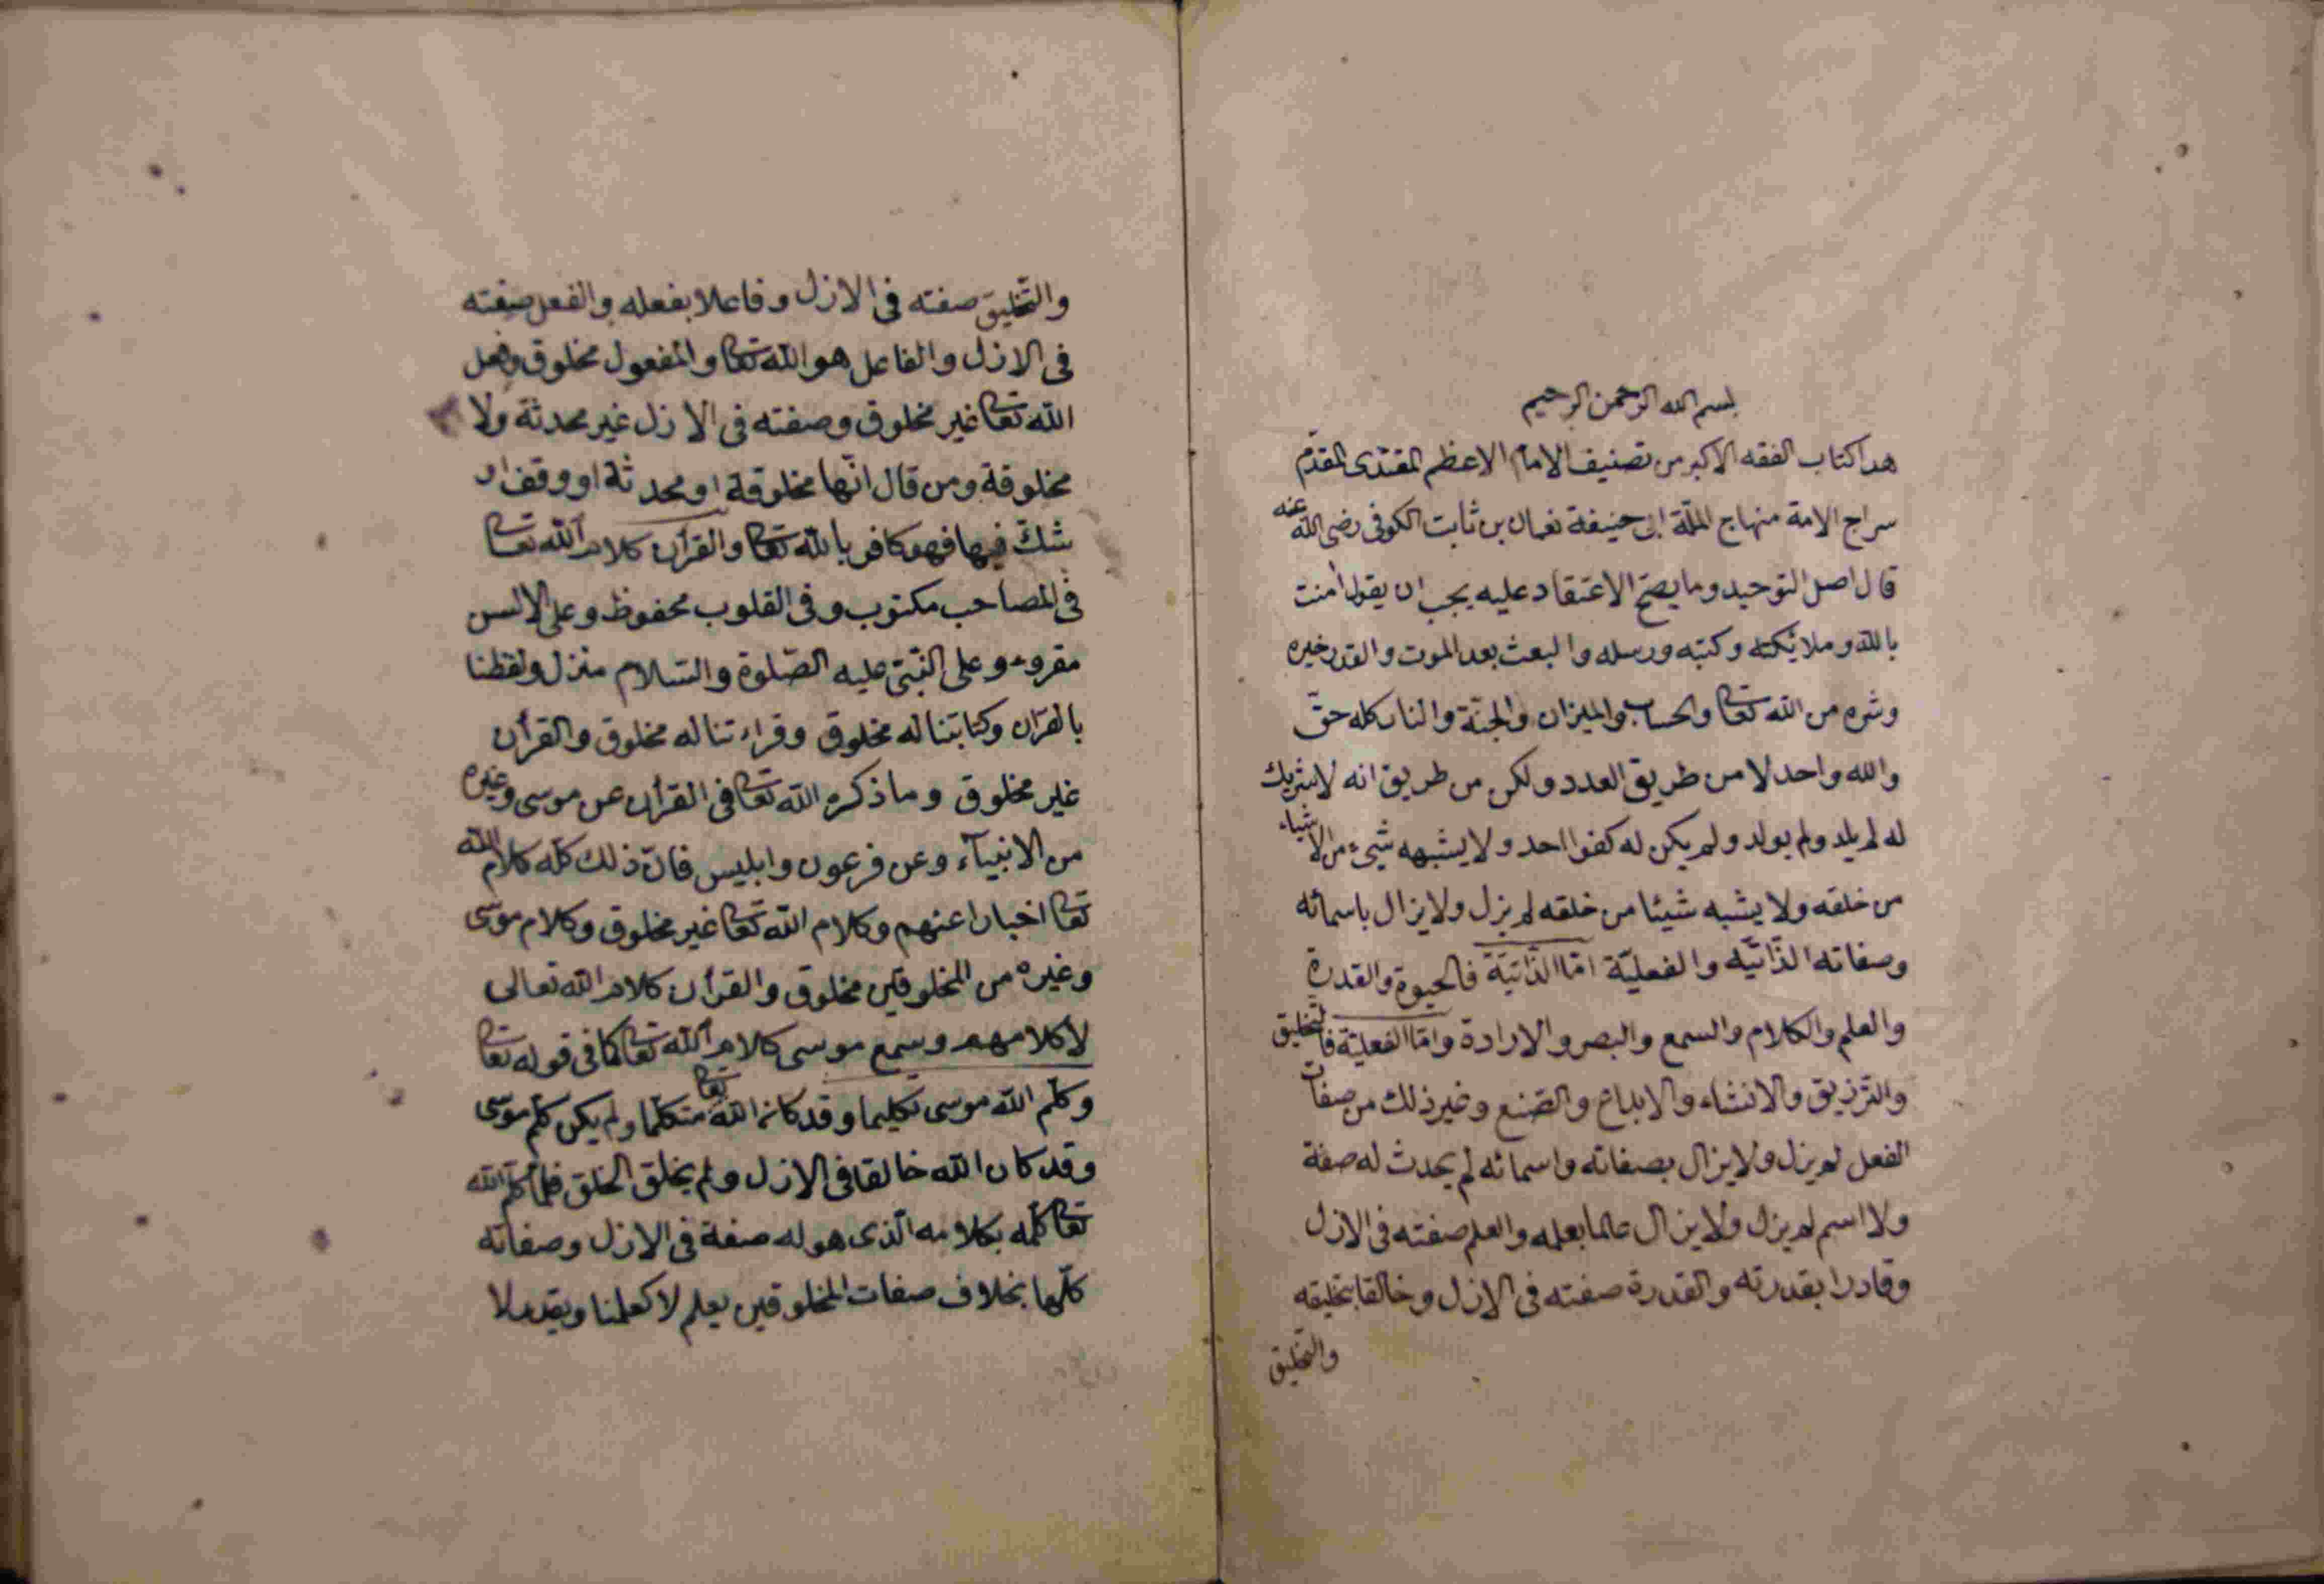 بسم الله الرحمن الرحيم
هذا كتاب الفقه الاكبر من تصنيف الامام الاعظم المقتدى المقدّم
سراج الامة منهاج الملّة ابى حنيفة نعمان بن ثابت الكوفى رضى الله عنه
قال اصل التوحيد وما يصحّ الاعتقاد عليه يجب ان يقول امنت
بالله وملائكته وكتبه ورسله والبعث بعد الموت والقدر خيره
وشره من الله تعا والحساب والميزان والجنّة والنار كله حقّ
والله واحد لا من طريق العدد ولكن من طريق انه لا شريك
له لم يلد ولم يولد ولم يكن له كفوا احد ولا يشبهه شىء من الاشياء
من خلقه ولا يشبه شيئا من خلقه لم يزل ولا يزال باسمائه
وصفاته الذّاتيّه والفعليّة امّا الذّاتيّة فالحيوة والقدرة
والعلم والكلام والسمع والبصر والارادة وامّا الفعليّة فالتخليق
والترزيق والانشاء والابداع والصّنع وغير ذلك من صفات
الفعل لم يزل ولا يزال بصفاته واسمائه لم يحدث له صفة
ولا اسم لم يزل ولا يزال عالما بعلمه والعلم صفته فى الازل
وقادرا بقدرته والقدرة صفته فى الازل وخالقا بتخليقه
والتخليق
والتّخليق صفته فى الازل وفاعلا بفعله والفعل صفته
فى الازل والفاعل هو الله تعا والمفعول مخلوق وفعل
الله تعا غير مخلوق وصفته فى الازل غير محدثة ولا
مخلوقة ومن قال انّها مخلوقة او محدثة او وقف او
شكّ فيها فهو كافر بالله تعا والقرأن كلام الله تعا
فى المصاحب مكتوب وفى القلوب محفوظ وعلى الالسن
مقروء وعلى النّبىّ عليه الصّلوة والسّلام منزل ولفظنا
بالقرأن وكتابتنا له مخلوق وقراءتنا له مخلوق والقرأن
غير مخلوق وما ذكره الله تعا فى القرأن عن موسى وغيره
من الانبيآء وعن فرعون وابليس فانّ ذلك كلّه كلام الله
تعا اخبارا عنهم وكلام الله تعا غير مخلوق وكلام موسى
وغيره من المخلوقين مخلوق والقرأن كلام الله تعالى
لا كلامهم وسمع موسى كلام الله تعا كما فى قوله تعا
وكلّم الله موسى تكليما وقد كان الله تعا متكلّما ولم يكن كلّم موسى
وقد كان الله خالقا فى الازل ولم يخلق الخلق فلمّا كلّم الله
تعا كلّمه بكلامه الّذى هو له صفة فى الازل وصفاته
كلّها بخلاف صفات المخلوقين يعلم لا كعلمنا ويقدر لا